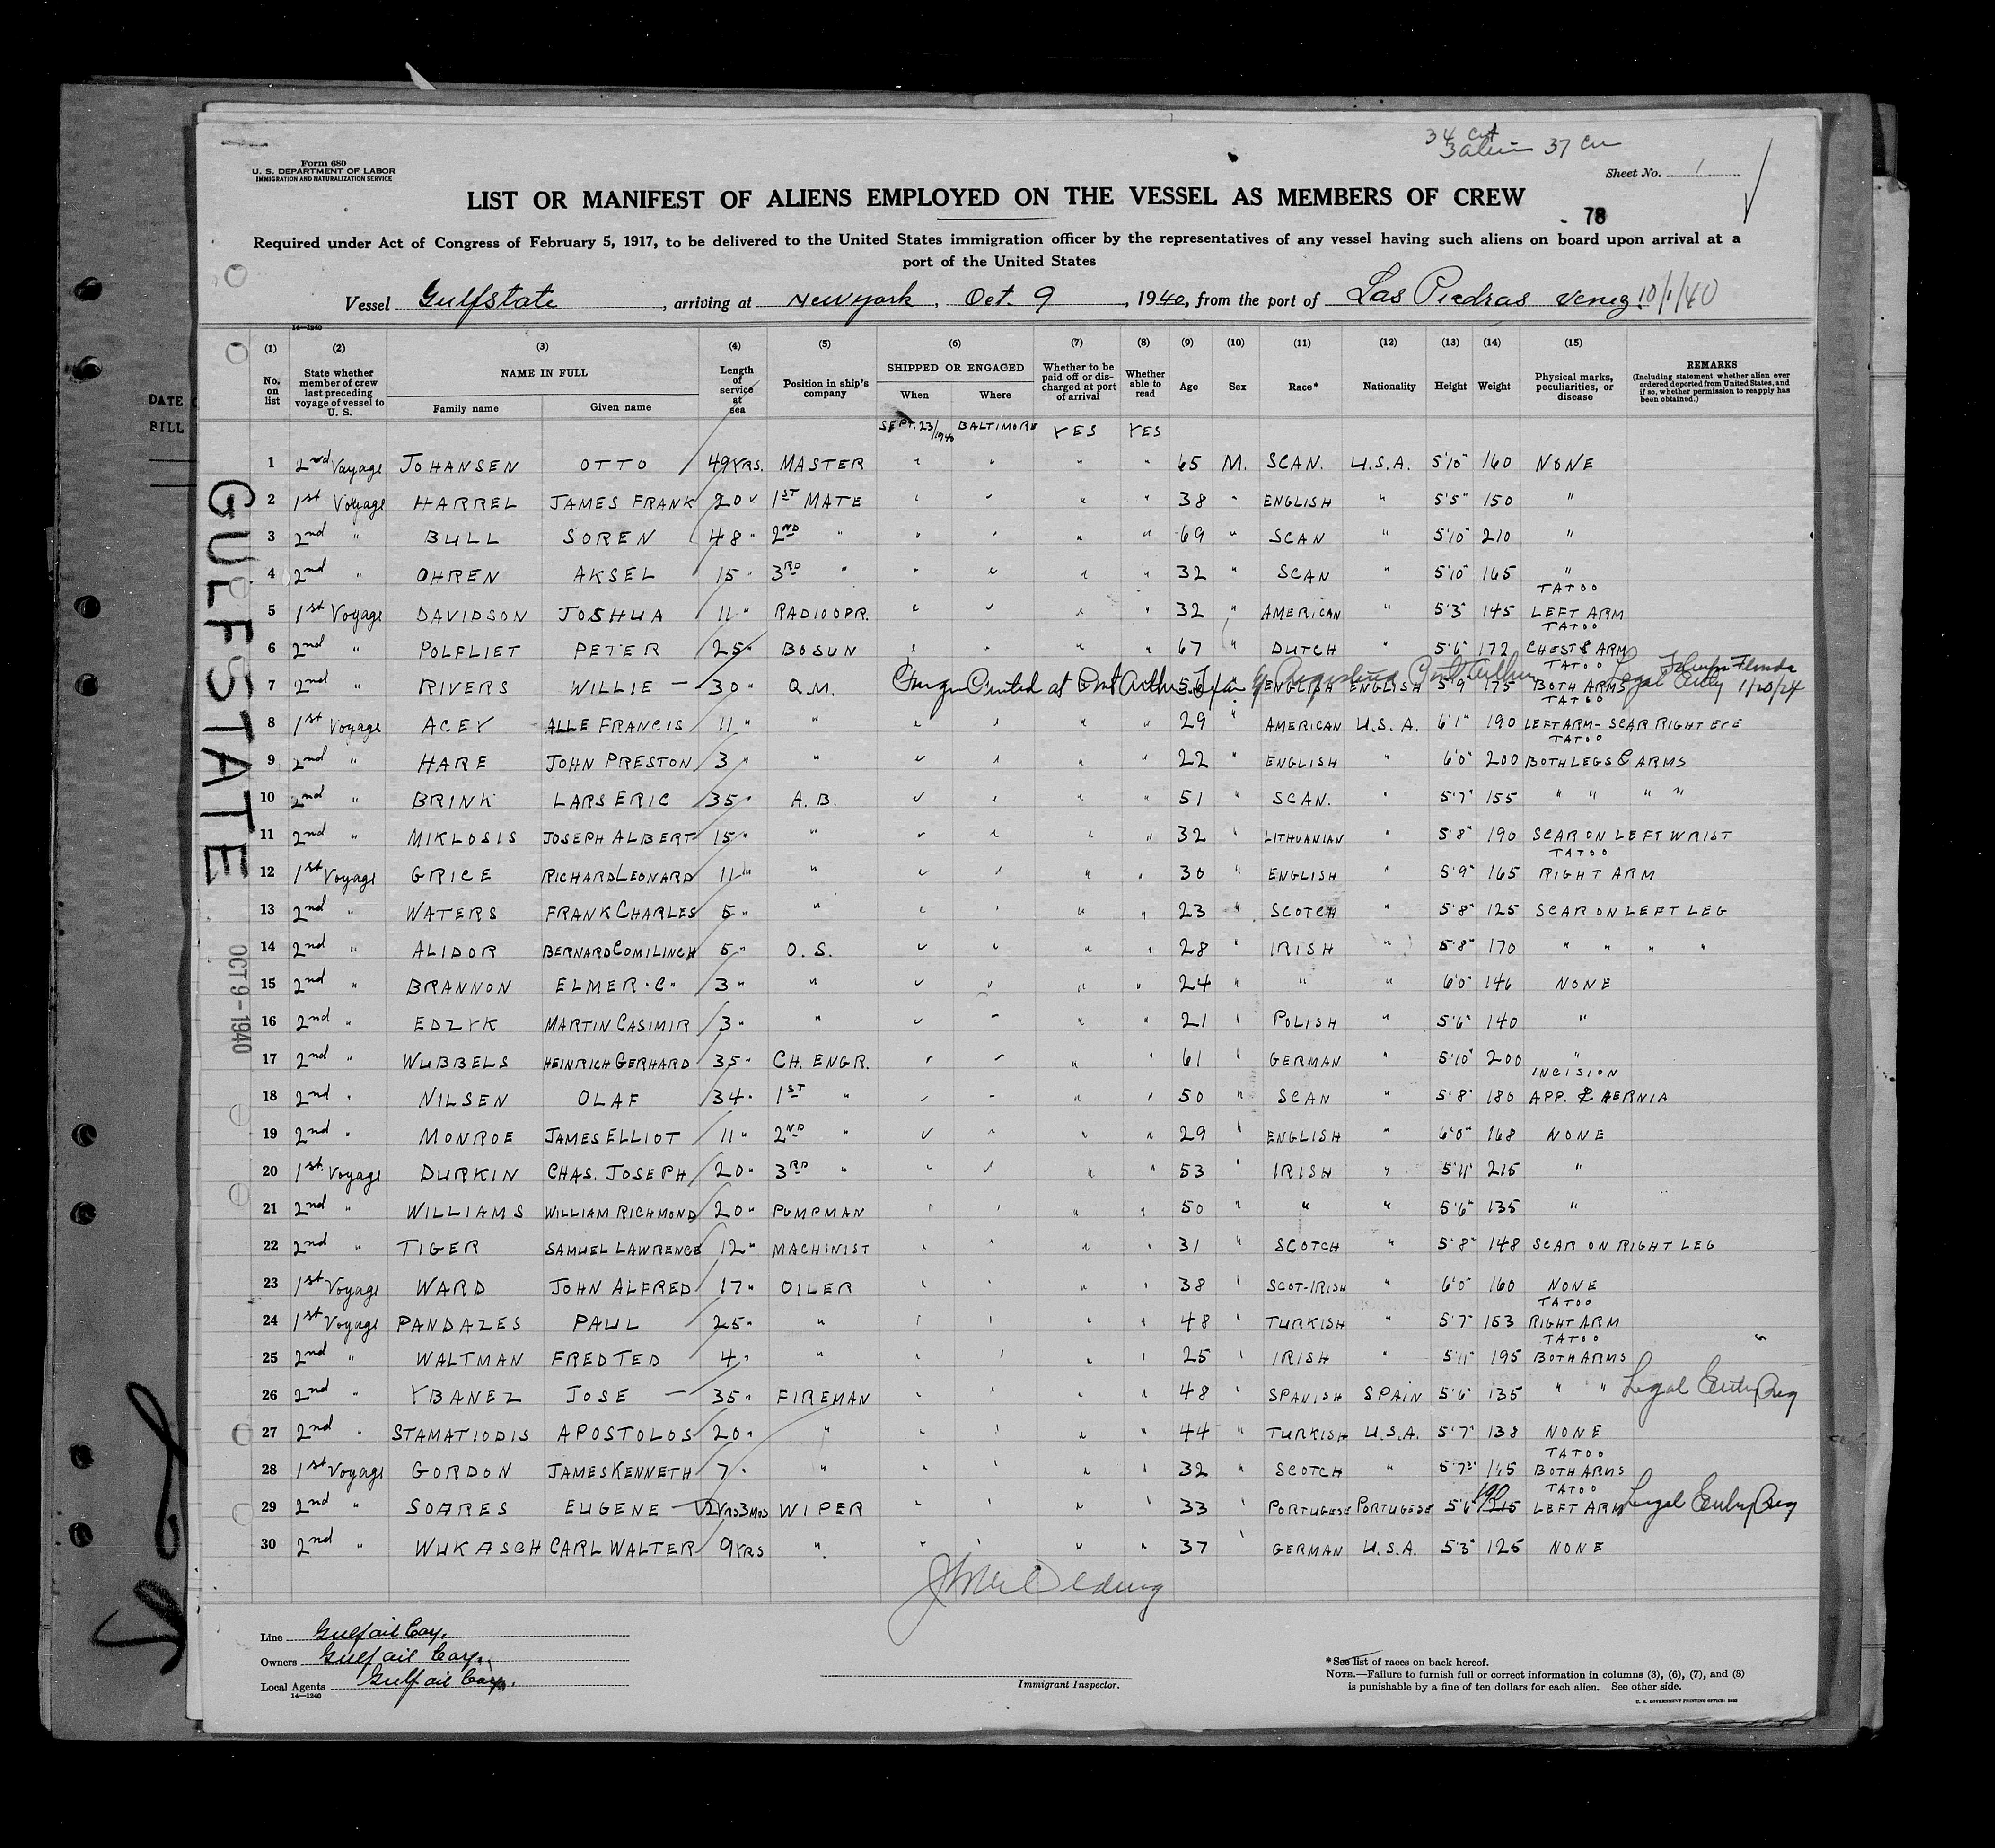 34 Cit
3 alien 37 Cr
Form 680
U. S. DEPARTMENT OF LABOR
IMMIGRATION AND NATURALIZATION SERVICE
Sheet No. 1
LIST OR MANIFEST OF ALIENS EMPLOYED ON THE VESSEL AS MEMBERS OF CREW
78
Required under Act of Congress of February 5, 1917, to be delivered to the United States immigration officer by the representatives of any vessel having such aliens on board upon arrival at a
port of the United States
Vessel Gulfstate, arriving at New york, Oct. 9, 1940, from the port of Las Piedras Venez. 10/1/40
14—1240
(1) (2) (3) (4) (5) (6) (7) (8) (9) (10) (11) (12) (13) (14) (15)
No. on list State whether member of crew last preceding voyage of vessel to U. S. NAME IN FULL Family name Given name Length of service at sea Position in ship's company SHIPPED OR ENGAGED When Where Whether to be paid off or discharged at port of arrival Whether able to read Age Sex Race* Nationality Height Weight Physical marks, peculiarities, or disease REMARKS (Including statement whether alien ever ordered deported from United States, and if so, whether permission to reapply has been obtained.)
SEPT. 23/1940 BALTIMORE YES YES
1 2nd Voyage JOHANSEN OTTO 49 YRS. MASTER " " " " 65 M. SCAN. U.S.A. 5'10" 160 NONE
2 1st Voyage HARREL JAMES FRANK 20 " 1ST MATE " " " " 38 " ENGLISH " 5'5" 150 "
3 2nd " BULL SOREN 48 " 2ND " " " " " 69 " SCAN " 5'10" 210 "
4 2nd " OHREN AKSEL 15 " 3RD " " " " " 32 " SCAN " 5'10" 165 "
5 1st Voyage DAVIDSON JOSHUA 11 " RADIO OPR. " " " " 32 " AMERICAN " 5'3" 145 TATOO LEFT ARM
6 2nd " POLFLIET PETER 25 " BOSUN " " " " 67 " DUTCH " 5'6" 172 TATOO CHEST & ARM
7 2nd " RIVERS WILLIE — 30 " Q.M. at Port Arthur Texas Registered Port Arthur ENGLISH ENGLISH 5'9" 175 TATOO BOTH ARMS Legal Entry 1/20/24
8 1st Voyage ACEY ALLE FRANCIS 11 " " " " " " 29 " AMERICAN U.S.A. 6'1" 190 TATOO LEFT ARM - SCAR RIGHT EYE
9 2nd " HARE JOHN PRESTON 3 " " " " " " 22 " ENGLISH " 6'0" 200 TATOO BOTH LEGS & ARMS
10 2nd " BRINK LARS ERIC 35 " A.B. " " " " 51 " SCAN. " 5'7" 155 " " " "
11 2nd " MIKLOSIS JOSEPH ALBERT 15 " " " " " " 32 " LITHUANIAN " 5'8" 190 SCAR ON LEFT WRIST
12 1st Voyage GRICE RICHARD LEONARD 11 " " " " " " 30 " ENGLISH " 5'9" 165 TATOO RIGHT ARM
13 2nd " WATERS FRANK CHARLES 5 " " " " " " 23 " SCOTCH " 5'8" 125 SCAR ON LEFT LEG
14 2nd " ALIDOR BERNARD COMILINCH 5 " O.S. " " " " 28 " IRISH " 5'8" 170 " " " "
15 2nd " BRANNON ELMER C. 3 " " " " " " 24 " " " 6'0" 146 NONE
16 2nd " EDZYK MARTIN CASIMIR 3 " " " " " " 21 " POLISH " 5'6" 140 "
17 2nd " WUBBELS HEINRICH GERHARD 35 " CH. ENGR. " " " " 61 " GERMAN " 5'10" 200 "
18 2nd " NILSEN OLAF 34 " 1ST " " " " " 50 " SCAN " 5'8" 180 INCISION APP. & HERNIA
19 2nd " MONROE JAMES ELLIOT 11 " 2ND " " " " " 29 " ENGLISH " 6'0" 168 NONE
20 1st Voyage DURKIN CHAS. JOSEPH 20 " 3RD " " " " " 53 " IRISH " 5'11" 215 "
21 2nd " WILLIAMS WILLIAM RICHMOND 20 " PUMPMAN " " " " 50 " " " 5'6" 135 "
22 2nd " TIGER SAMUEL LAWRENCE 12 " MACHINIST " " " " 31 " SCOTCH " 5'8" 148 SCAR ON RIGHT LEG
23 1st Voyage WARD JOHN ALFRED 17 " OILER " " " " 38 " SCOT-IRISH " 6'0" 160 NONE
24 1st Voyage PANDAZES PAUL 25 " " " " " " 48 " TURKISH " 5'7" 153 TATOO RIGHT ARM
25 2nd " WALTMAN FRED TED 4 " " " " " " 25 " IRISH " 5'11" 195 TATOO BOTH ARMS
26 2nd " YBANEZ JOSE — 35 " FIREMAN " " " " 48 " SPANISH SPAIN 5'6" 135 " " Legal Entry Reg
27 2nd " STAMATIODIS APOSTOLOS 20 " " " " " " 44 " TURKISH U.S.A. 5'7" 138 NONE
28 1st Voyage GORDON JAMES KENNETH 7 " " " " " " 32 " SCOTCH " 5'7" TATOO BOTH ARMS
29 2nd " SOARES EUGENE — 2 YRS 3 MOS WIPER " " " " 33 PORTUGESE PORTUGESE 5'6" 190 215 TATOO LEFT ARM Legal Entry Reg
30 2nd " WUKASCH CARL WALTER 9 YRS " " " " " 37 " GERMAN U.S.A. 5'3" 125 NONE
GULFSTATE
OCT 9 - 1940
Line Gulf oil Corp.
Owners Gulf oil Corp.
Local Agents Gulf oil Corp.
14—1240
Immigrant Inspector.
*See list of races on back hereof.
NOTE.—Failure to furnish full or correct information in columns (3), (6), (7), and (8)
is punishable by a fine of ten dollars for each alien. See other side.
U. S. GOVERNMENT PRINTING OFFICE
DATE
BILL